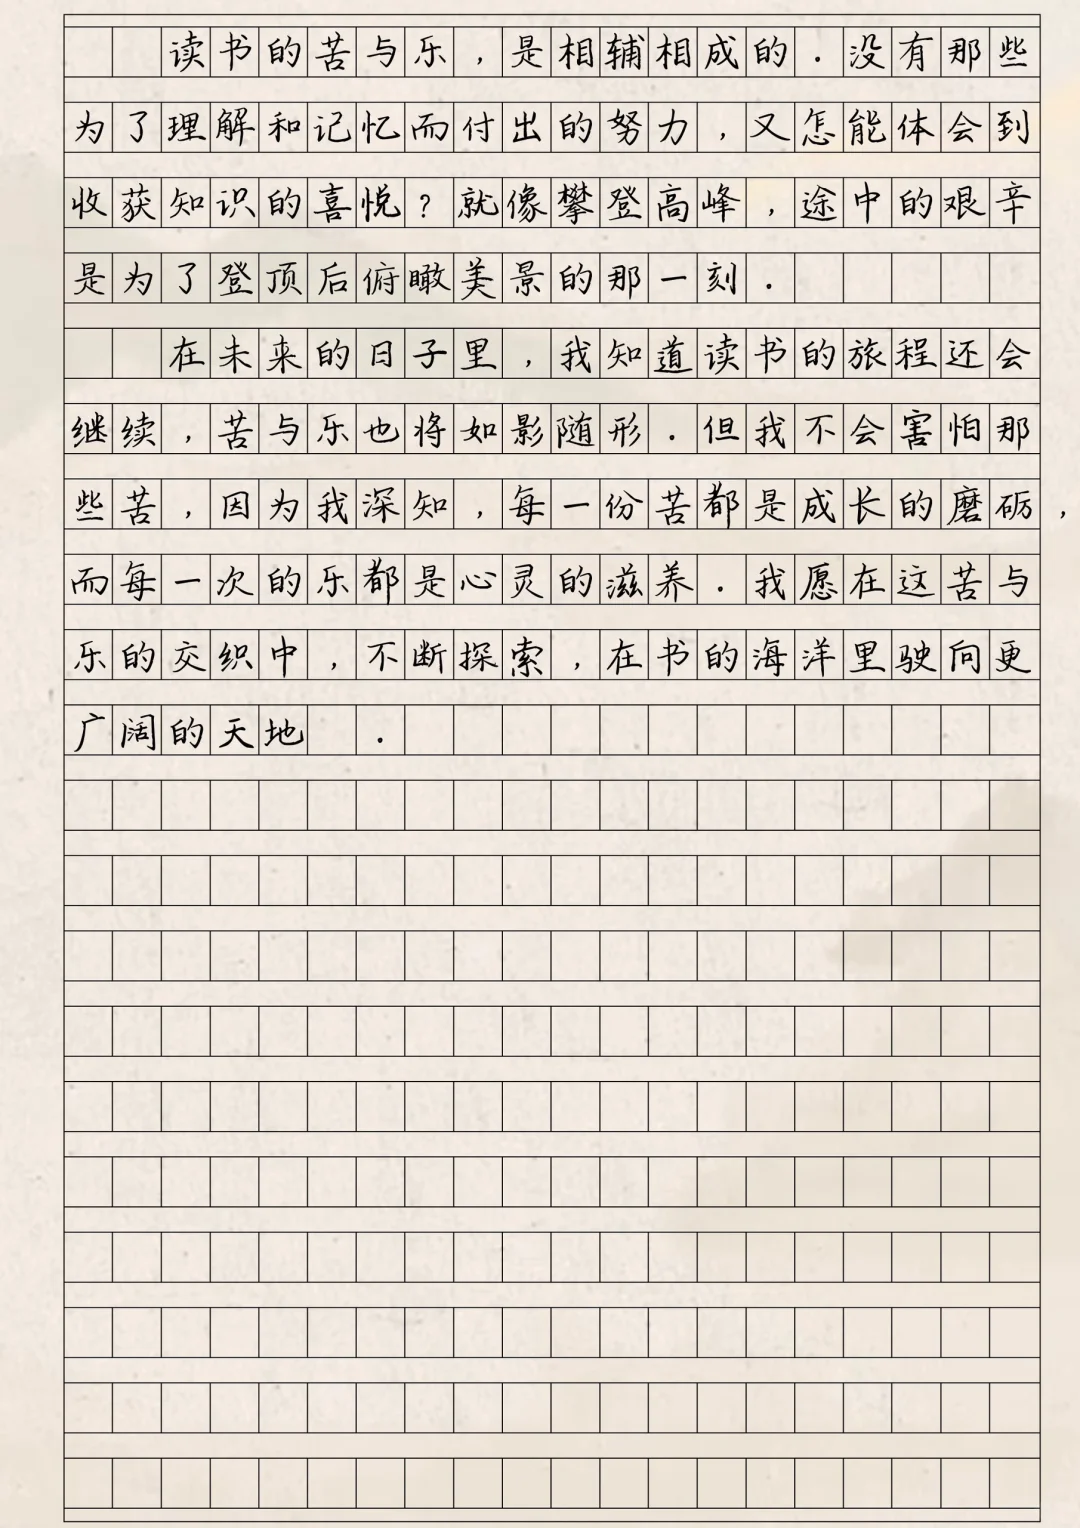 读书的苦与乐，是相辅相成的．没有那些
为了理解和记忆而付出的努力，又怎能体会到
收获知识的喜悦？就像攀登高峰，途中的艰辛
是为了登顶后俯瞰美景的那一刻．
在未来的日子里，我知道读书的旅程还会
继续，苦与乐也将如影随形．但我不会害怕那
些苦，因为我深知，每一份苦都是成长的磨砺，
而每一次的乐都是心灵的滋养．我愿在这苦与
乐的交织中，不断探索，在书的海洋里驶向更
广阔的天地．